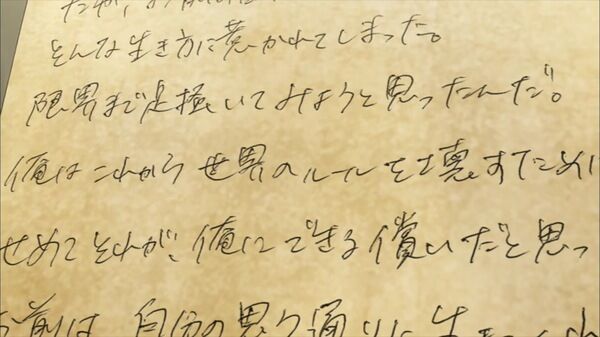 そんな生き方に惹かれてしまった。
限界まで足掻いてみようと思ったんだ。
俺はこれから世界のルールを壊すために
せめてそれが、俺にできる償いだと思っ
お前は、自分の思う通りに生きてくれ